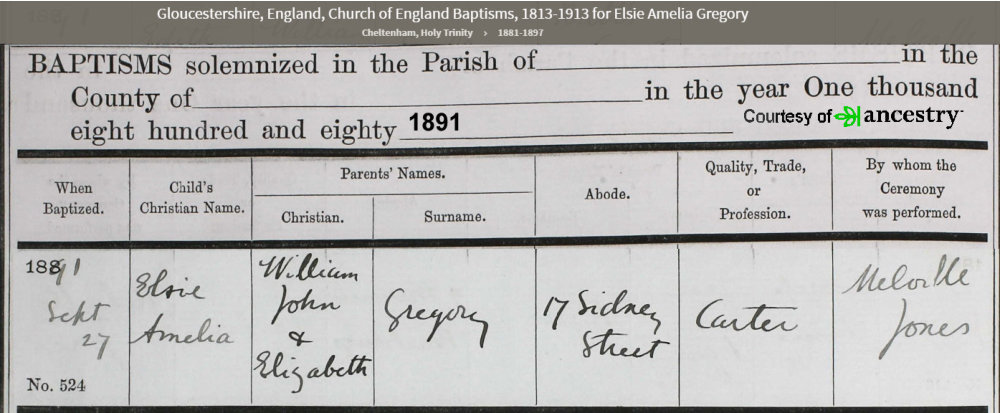 Gloucestershire, England, Church of England Baptisms, 1813-1913 for Elsie Amelia Gregory
Cheltenham, Holy Trinity › 1881-1897
BAPTISMS solemnized in the Parish of in the
County of in the year One thousand
eight hundred and eighty 1891
Courtesy of ancestry
When Baptized.
Child's Christian Name.
Parents' Names.
Christian.
Surname.
Abode.
Quality, Trade, or Profession.
By whom the Ceremony was performed.
1891
Sept
27
No. 524
Elsie
Amelia
William
John
&
Elizabeth
Gregory
17 Sidney
Street
Carter
Melville
Jones